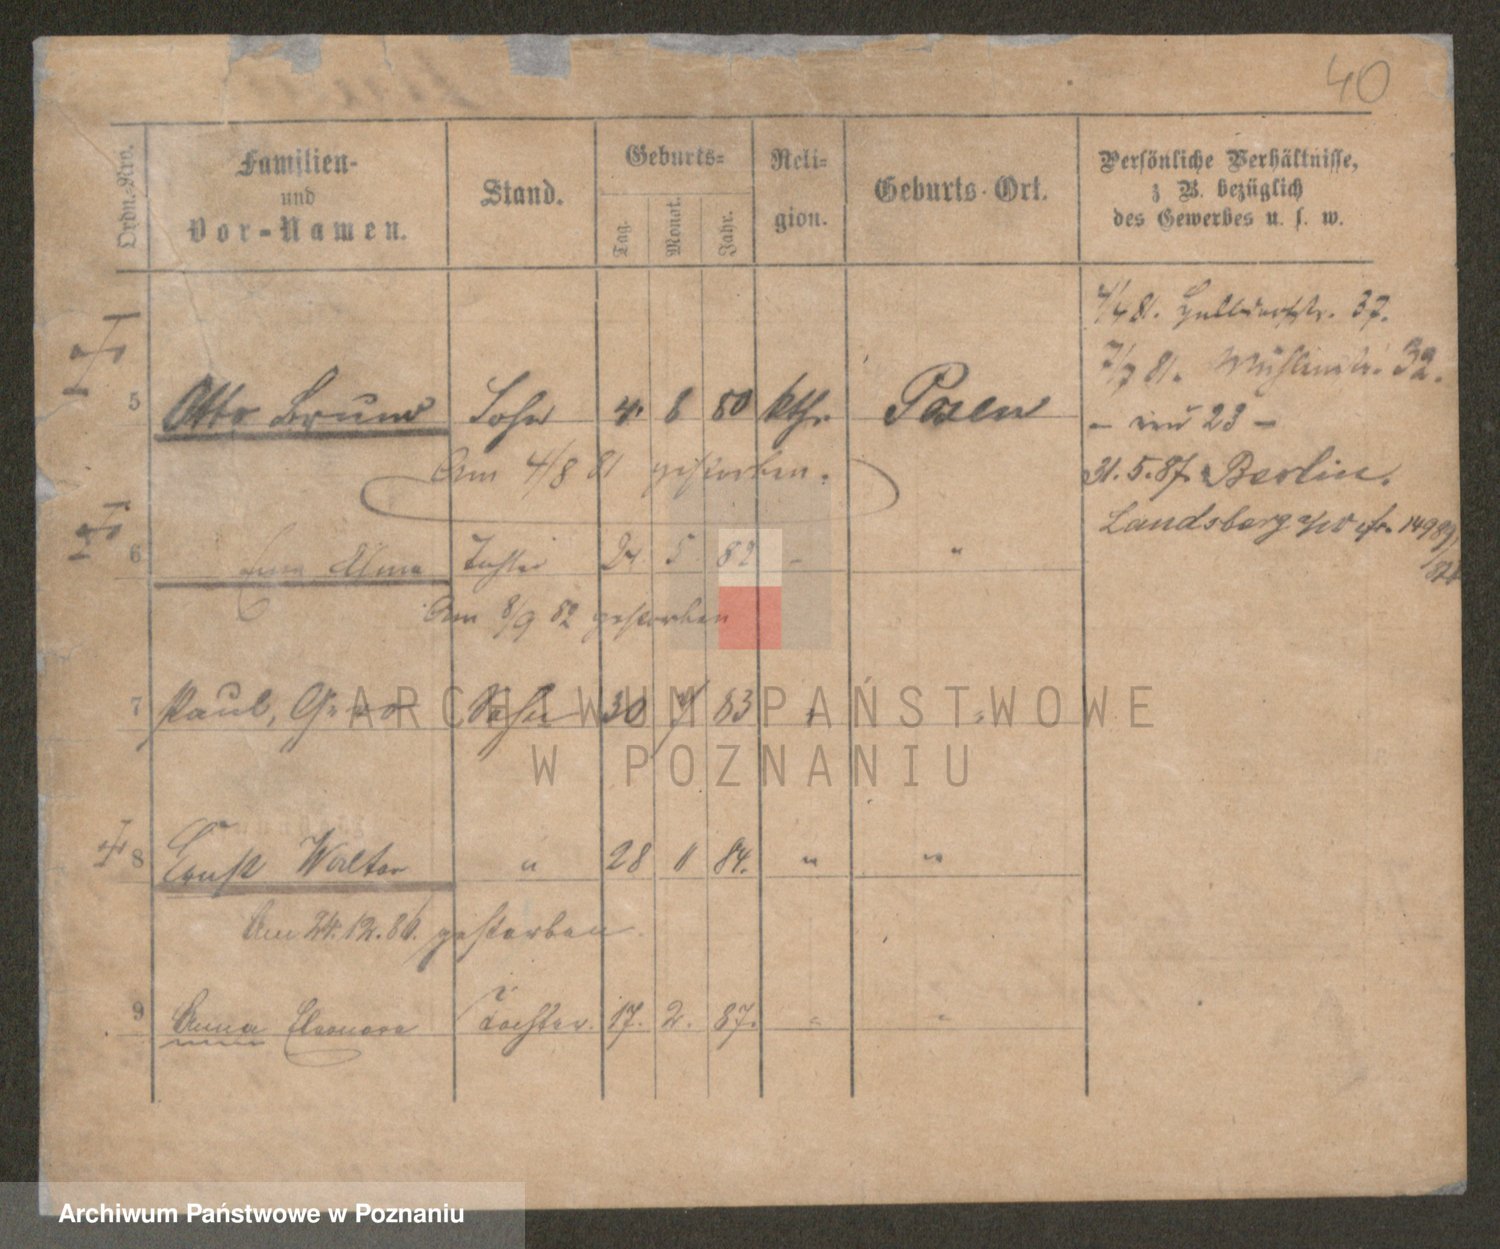 40
Ordn.-Nro.
Familien-
und
Vor-Namen.
Stand.
Geburts-
Tag. Monat. Jahr.
Reli-
gion.
Geburts-Ort.
Persönliche Verhältnisse,
z. B. bezüglich
des Gewerbes u. s. w.
4/4 81. 37.
7/7 81. Mühlenstr. 32.
5 Otto Bruno Sohn 4. 8 80 kth. Posen
– 23 –
Am 4/8 81 gestorben.
31.5.87. Berlin.
Landsberg a/W 149 89/
6 Alma Tochter 24. 5 82 - "
Am 8/9 82 gestorben
7 Paul, Sohn 30 83 "
ARCHIWUM PAŃSTWOWE
W POZNANIU
8 Ernst Walter " 28 84. " "
Am 24.12.86. gestorben.
9 Anna Eleonore Tochter. 17. 2. 87. " "
Archiwum Państwowe w Poznaniu